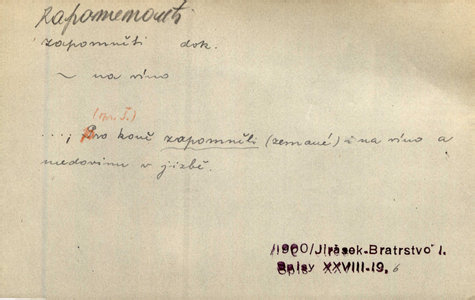 zapomenouti
zapomněti dok.
~ na víno
(m. j.)
...; Pro koně zapomněli (zemané) i na víno a
medovinu v jizbě.
/1900/Jirásek-Bratrstvo I.
Spisy XXVIII-19, 6